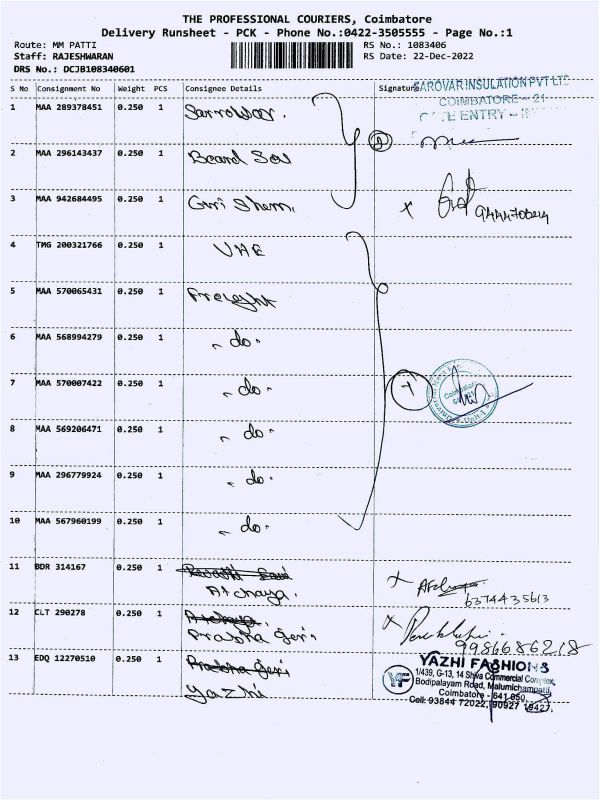 THE PROFESSIONAL COURIERS, Coimbatore
Delivery Runsheet - PCK - Phone No.:0422-3505555 - Page No.:1
Route: MM PATTI
RS No.: 1083406
Staff: RAJESHWARAN
RS Date: 22-Dec-2022
DRS No.: DCJB108340601
S No Consignment No Weight PCS Consignee Details Signature
SAROVAR INSULATION PVT LTD
COIMBATORE - 21
1 MAA 289378451 0.250 1 Sarrowar.
2 MAA 296143437 0.250 1
3 MAA 942684495 0.250 1
4 TMG 200321766 0.250 1 UAE
5 MAA 570065431 0.250 1 Freight
6 MAA 568994279 0.250 1 " do "
7 MAA 570007422 0.250 1 " do "
8 MAA 569206471 0.250 1 " do "
9 MAA 296779924 0.250 1 " do "
10 MAA 567960199 0.250 1 " do "
11 BDR 314167 0.250 1
Atchaya.
6374435613
12 CLT 290278 0.250 1 Atchaya.
Prabha Geri.
9986686218
13 EDQ 12270510 0.250 1 Prabha Geri
Yazhi
YF
YAZHI FASHIONS
1/439, G-13, 14 Shiva Commercial Complex,
Bodipalayam Road, Malumichampatti,
Coimbatore - 641 050.
Cell: 93844 72022, 90927 19427.